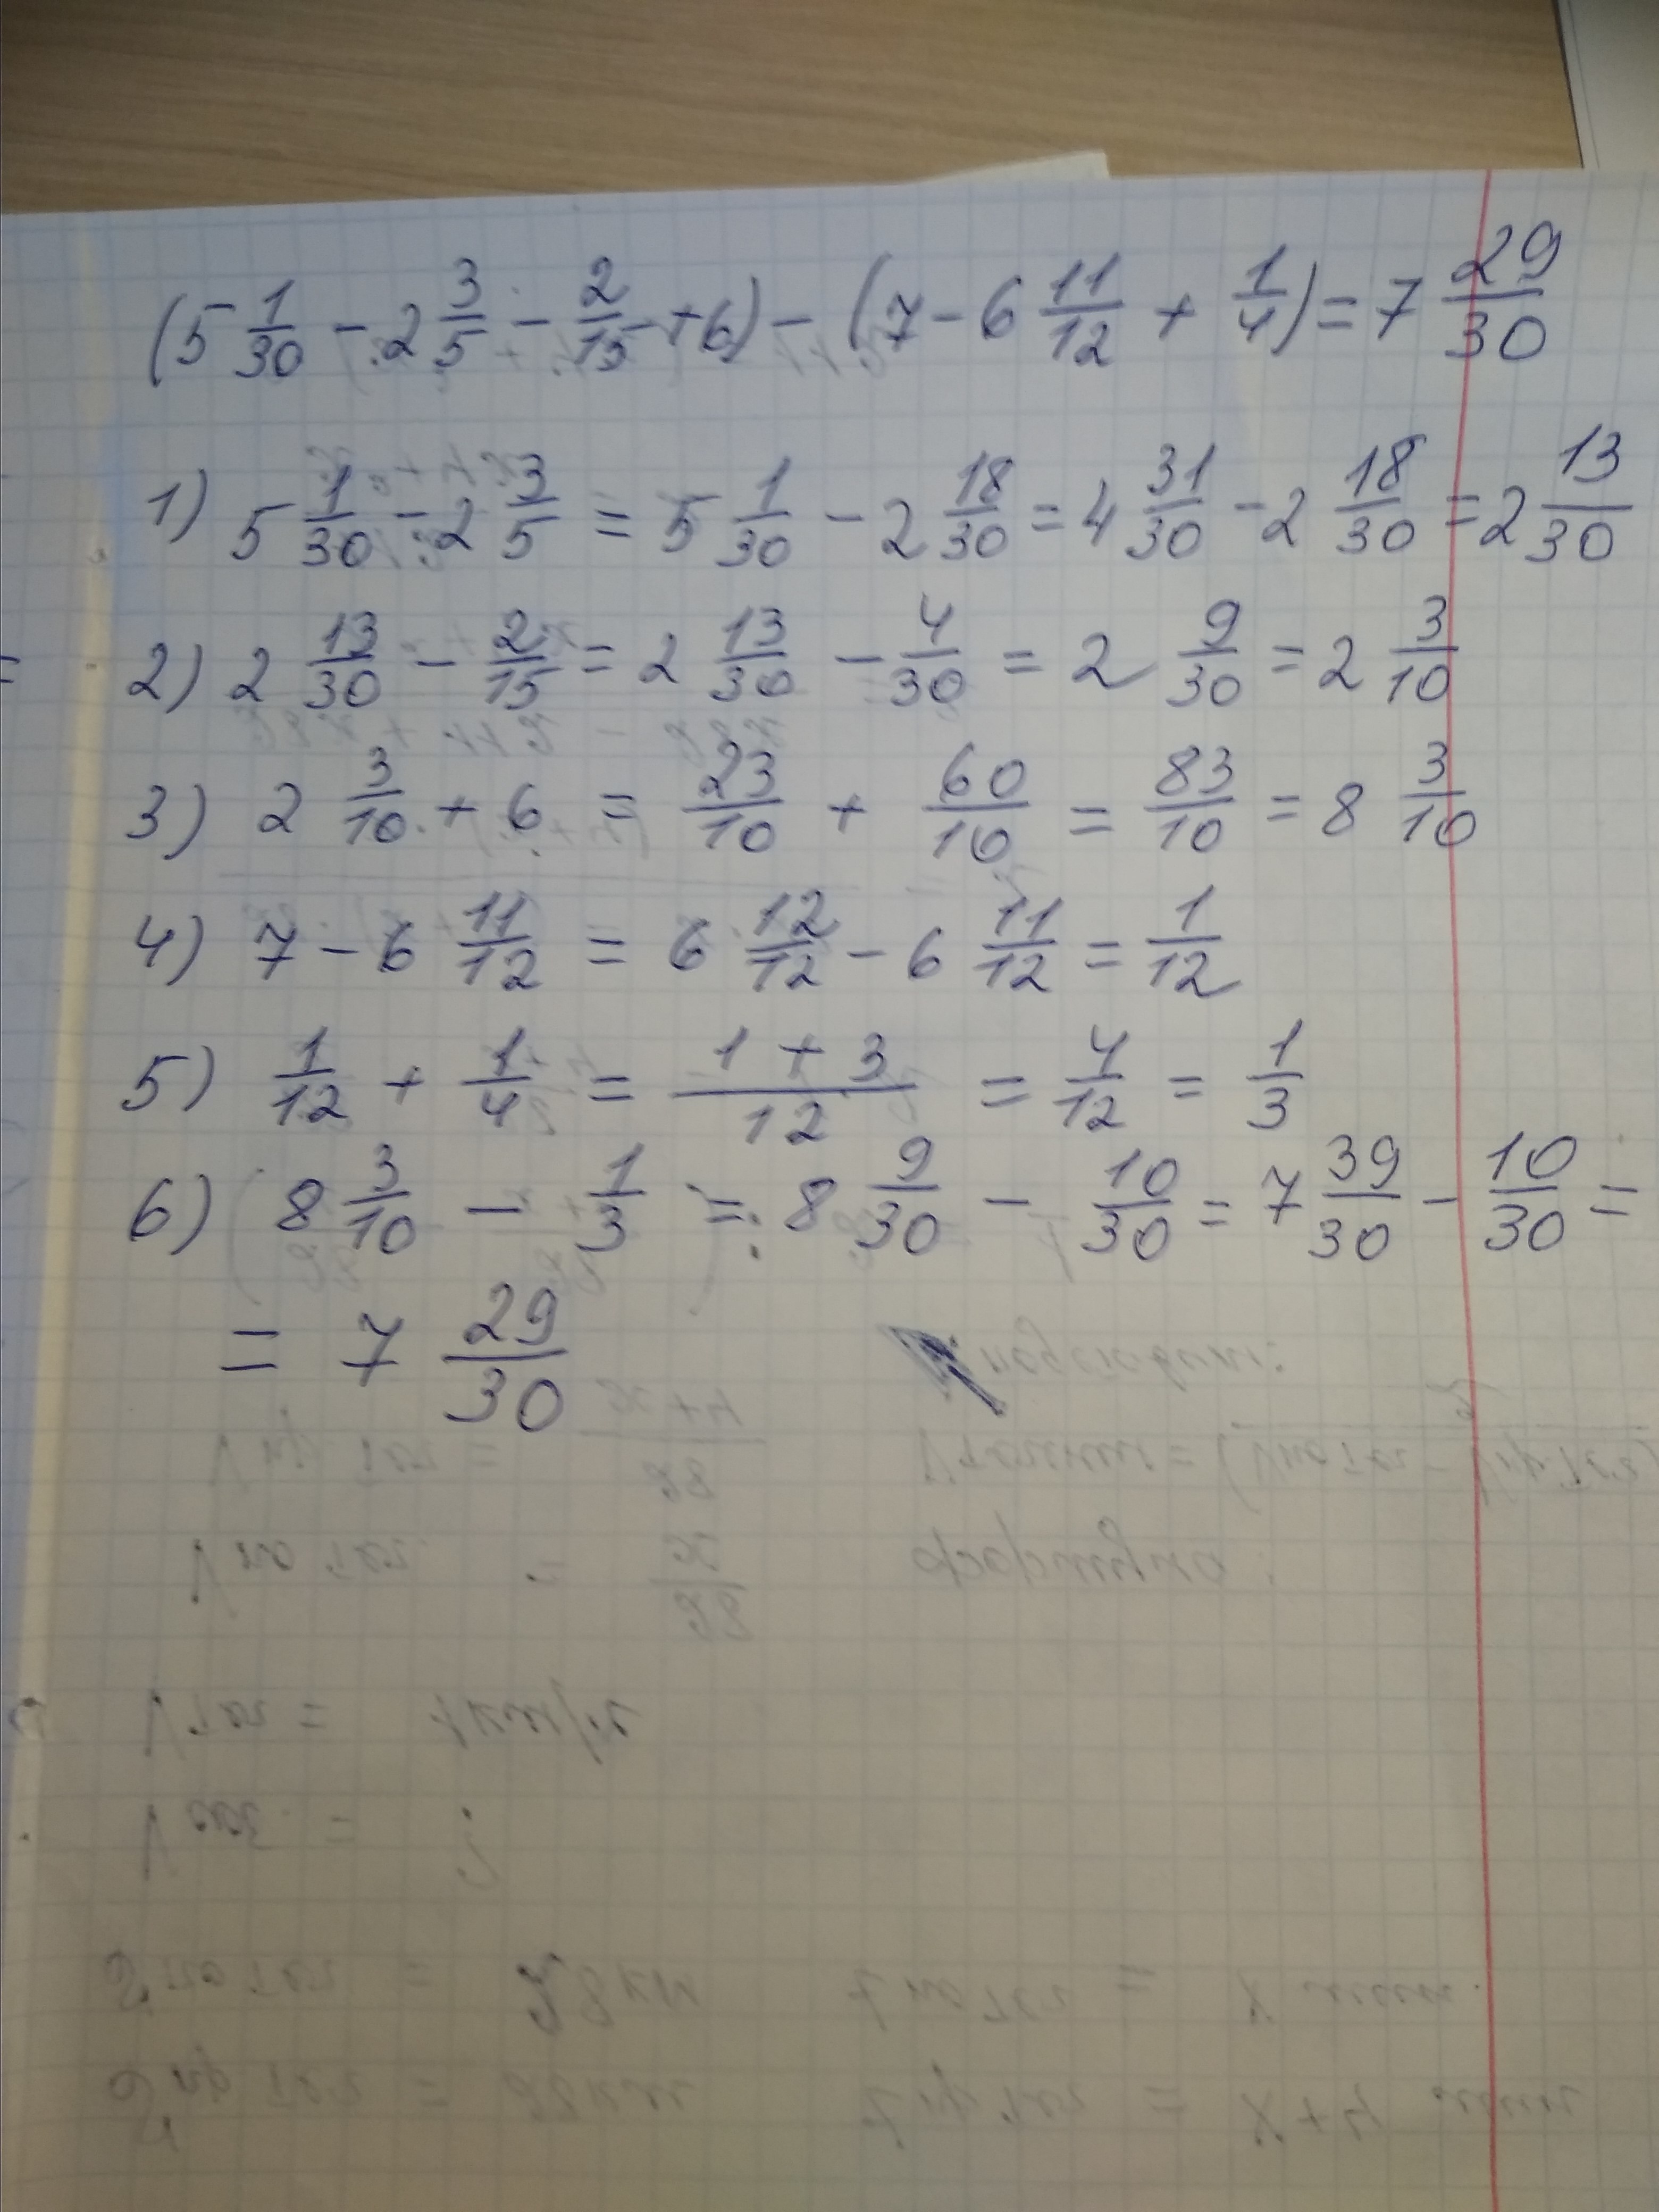 (5 1/30 - 2 3/5 - 2/15 + 6) - (7 - 6 11/12 + 1/4) = 7 29/30
1) 5 1/30 - 2 3/5 = 5 1/30 - 2 18/30 = 4 31/30 - 2 18/30 = 2 13/30
2) 2 13/30 - 2/15 = 2 13/30 - 4/30 = 2 9/30 = 2 3/10
3) 2 3/10 + 6 = 23/10 + 60/10 = 83/10 = 8 3/10
4) 7 - 6 11/12 = 6 12/12 - 6 11/12 = 1/12
5) 1/12 + 1/4 = (1 + 3)/12 = 4/12 = 1/3
6) 8 3/10 - 1/3 = 8 9/30 - 10/30 = 7 39/30 - 10/30 =
= 7 29/30